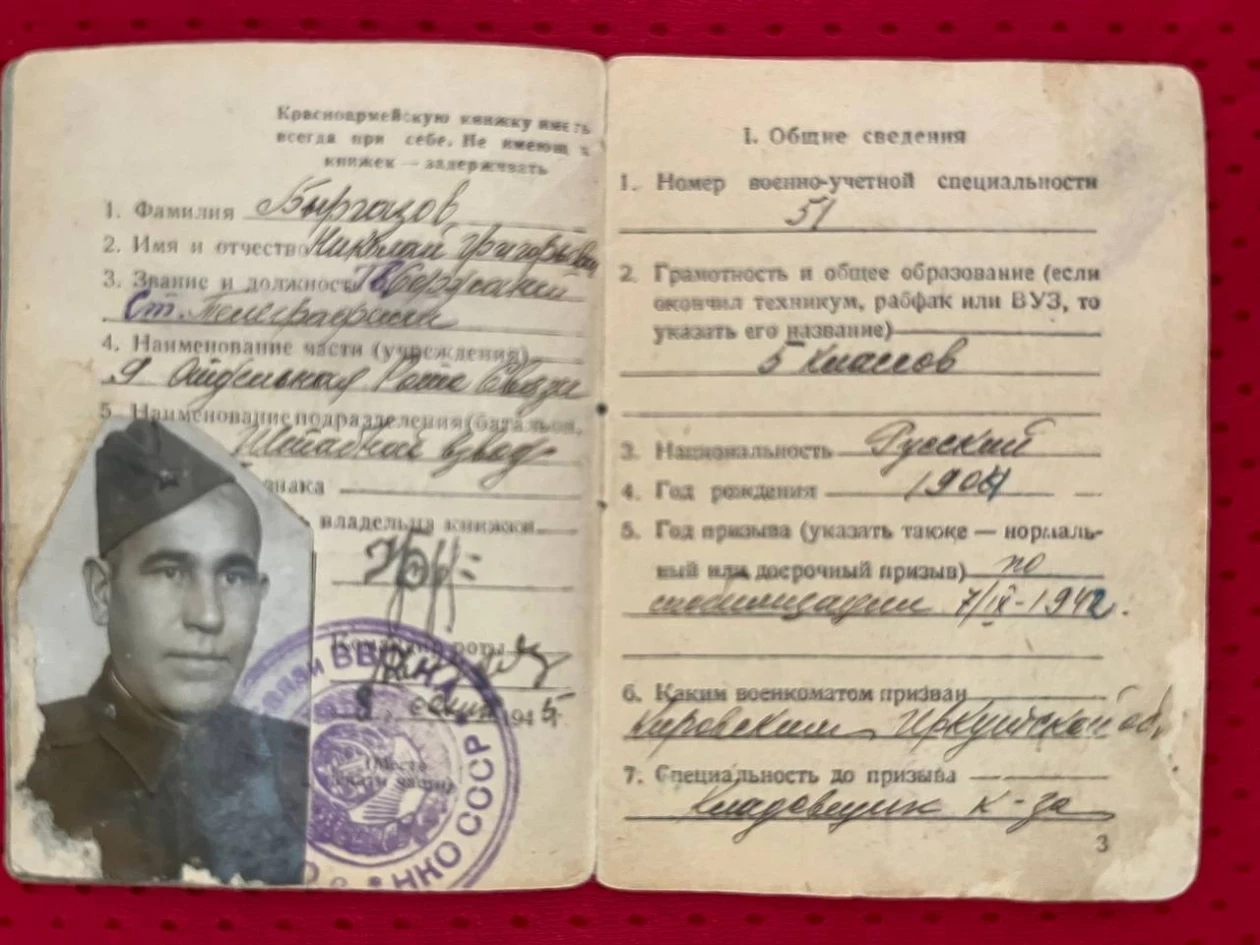 Красноармейскую книжку иметь
всегда при себе. Не имеющ х
книжек — задерживать
1. Фамилия Быргазов
2. Имя и отчество Николай Григорьевич
3. Звание и должность Гв. Сержант
Ст. Телеграфист
4. Наименование части (учреждения)
9 Отдельная Рота Связи
5. Наименование подразделения (батальон,
Штабной взвод
знака
владельца книжки
Командир роты
8 1945
(Место
печати части)
ННО СССР
I. Общие сведения
1. Номер военно-учетной специальности
51
2. Грамотность и общее образование (если
окончил техникум, рабфак или ВУЗ, то
указать его название)
5 классов
3. Национальность Русский
4. Год рождения 1904
5. Год призыва (указать также — нормаль-
ный или досрочный призыв) по
мобилизации 7/IX-1942.
6. Каким военкоматом призван
Кировским Иркутской об.
7. Специальность до призыва
Кладовщик к-за
3